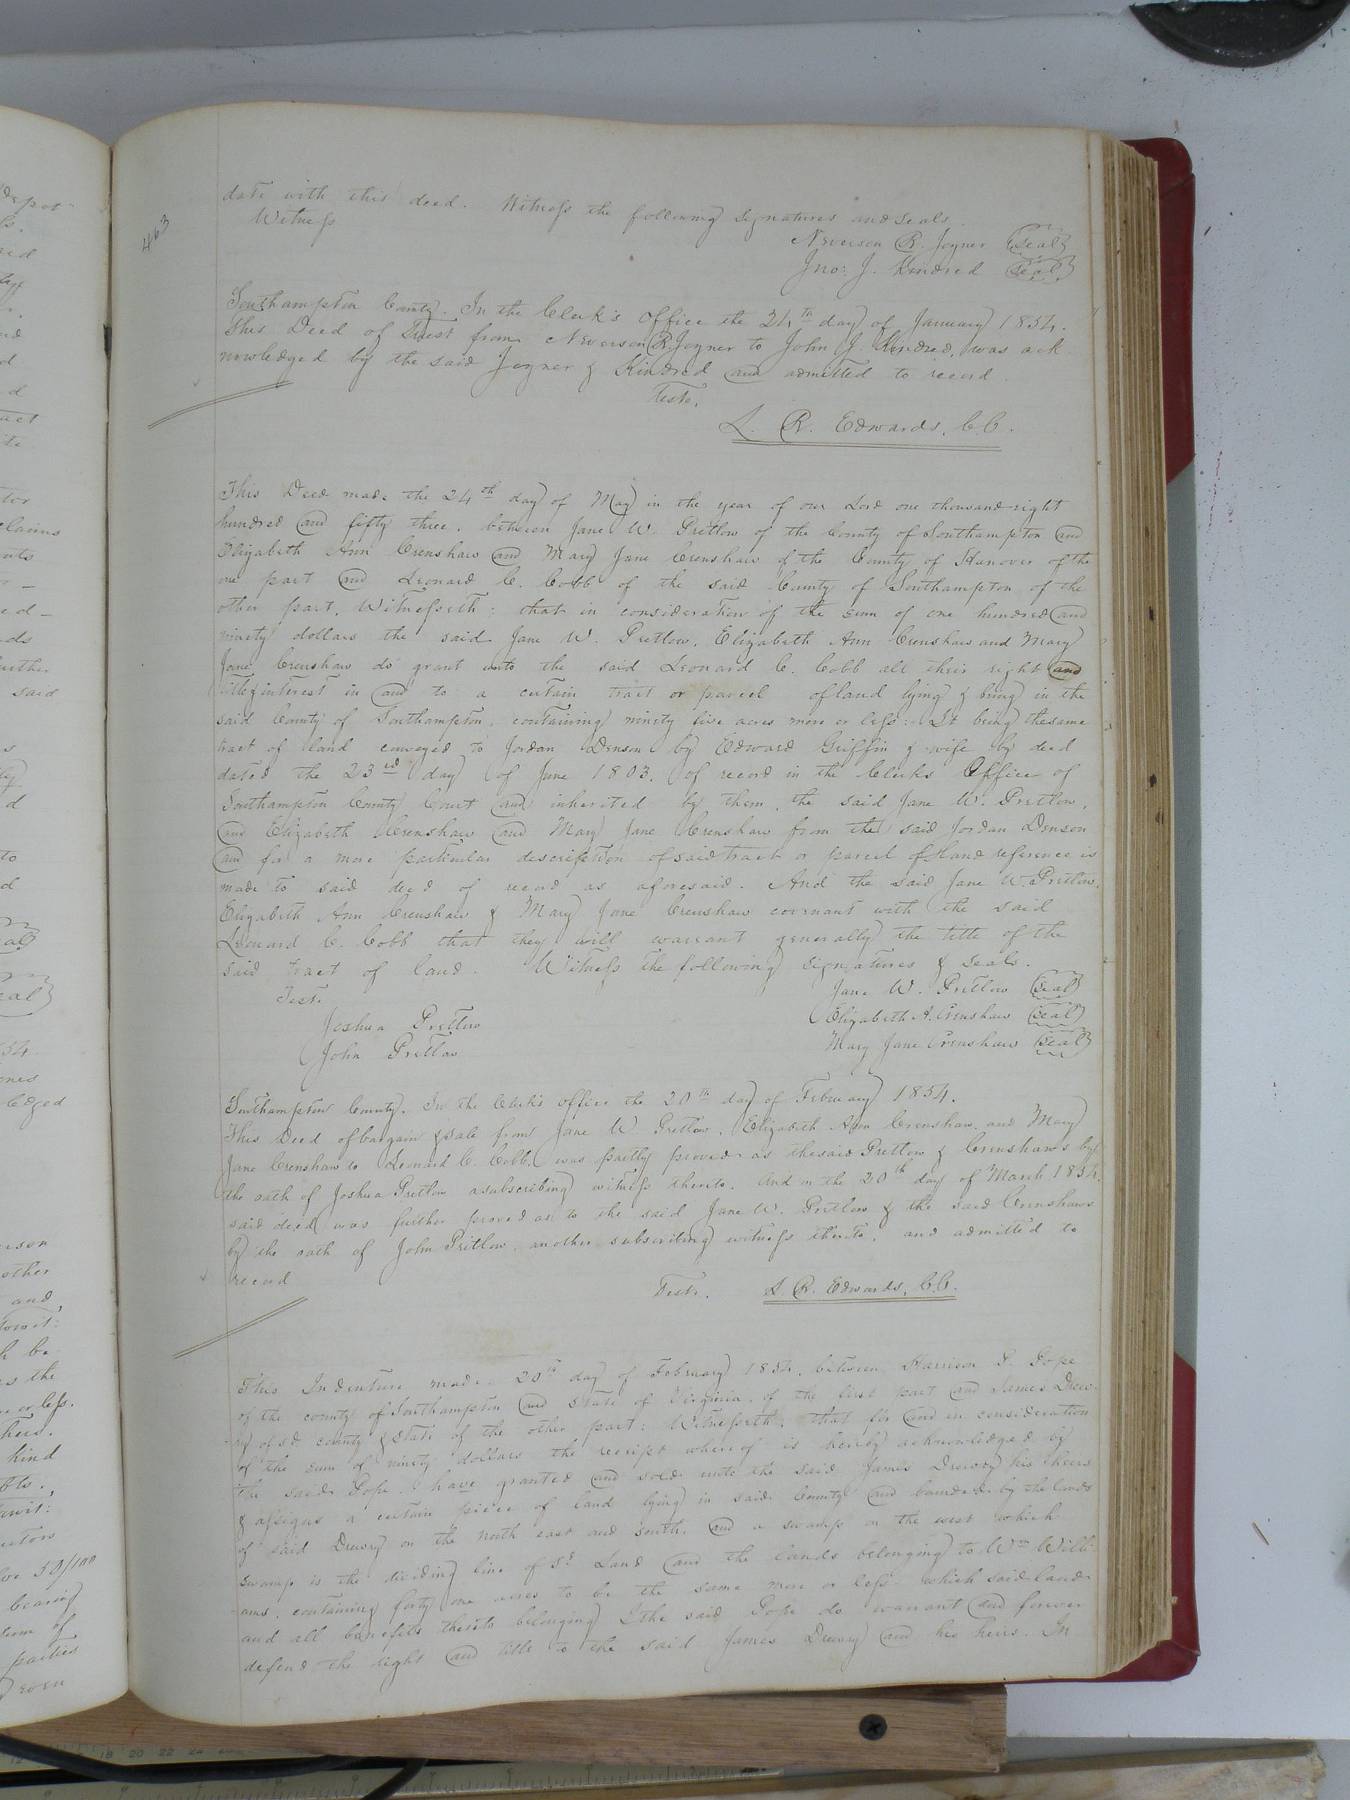 463
date with this deed. Witness the following signatures and seals.
Witness
Neverson R. Joyner (Seal)
Jno: J. Kindred (Seal)
Southampton County. In the Clerk's Office the 24th day of January 1854.
This Deed of Trust from Neverson R. Joyner to John J. Kindred, was ack
nowledged by the said Joyner & Kindred and admitted to record.
Teste,
L. R. Edwards, C.C.
This Deed made the 24th day of May in the year of our Lord one thousand eight
hundred and fifty three, between Jane W. Pretlow of the County of Southampton and
Elizabeth Ann Crenshaw and Mary Jane Crenshaw of the County of Hanover of the
one part and Leonard C. Cobb of the said County of Southampton of the
other part, Witnesseth: that in consideration of the sum of one hundred and
ninety dollars the said Jane W. Pretlow, Elizabeth Ann Crenshaw and Mary
Jane Crenshaw do grant unto the said Leonard C. Cobb all their right and
title & interest in and to a certain tract or parcel of land lying & being in the
said County of Southampton, containing ninety five acres more or less: It being the same
tract of land conveyed to Jordan Denson by Edward Griffin & wife by deed
dated the 23rd day of June 1803, of record in the Clerks Office of
Southampton County Court and inherited by them, the said Jane W. Pretlow,
and Elizabeth Crenshaw and Mary Jane Crenshaw from the said Jordan Denson
and for a more particular description of said tract or parcel of land reference is
made to said deed of record as aforesaid. And the said Jane W. Pretlow,
Elizabeth Ann Crenshaw & Mary Jane Crenshaw covenant with the said
Leonard C. Cobb that they will warrant generally the title of the
said tract of land. Witness the following signatures & seals.
Test. Jane W. Pretlow (Seal)
Joshua Pretlow Elizabeth A. Crenshaw (Seal)
John Pretlow Mary Jane Crenshaw (Seal)
Southampton County. In the Clerk's Office the 20th day of February 1854.
This Deed of bargain & sale from Jane W. Pretlow, Elizabeth Ann Crenshaw, and Mary
Jane Crenshaw to Leonard C. Cobb, was partly proved as the said Pretlow & Crenshaws by
the oath of Joshua Pretlow a subscribing witness thereto. And on the 20th day of March 1854,
said deed was further proved as to the said Jane W. Pretlow & the said Crenshaws
by the oath of John Pretlow, another subscribing witness thereto, and admitted to
record
Test. L. R. Edwards, C.C.
This Indenture made 20th day of February 1854, between Harrison P. Pope
of the county of Southampton and State of Virginia, of the first part and James Drew-
ry of sd county & State of the other part: Witnesseth, that for and in consideration
of the sum of ninety dollars the receipt whereof is hereby acknowledged by
the said Pope I have granted and sold unto the said James Drewry his heirs
& assigns a certain piece of land lying in said County and bounded by the lands
of said Drewry on the north east and south, and a swamp on the west which
swamp is the dividing line of sd Land and the lands belonging to Wm Willi-
ams, containing forty one acres to be the same more or less which said land
and all benefits thereto belonging I the said Pope do warrant and forever
defend the right and title to the said James Drewry and his heirs. In